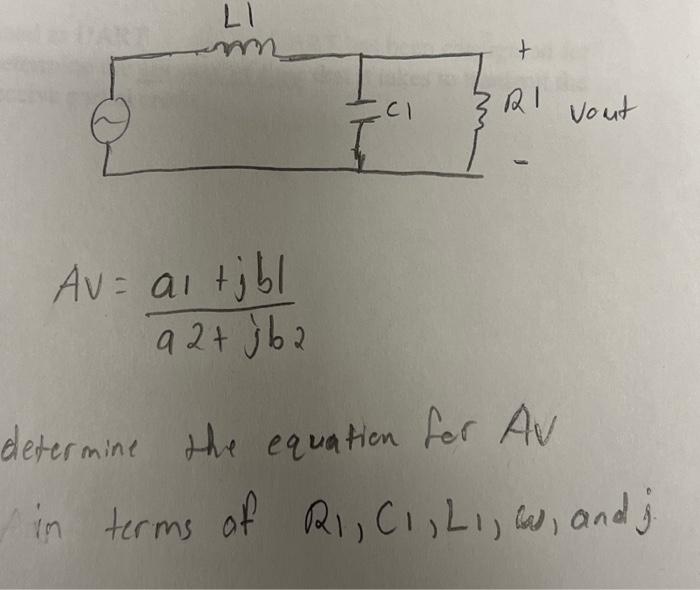 L1
+
C1
R1
Vout
-
Av = a1 + jb1
a2 + jb2
determine the equation for Av
in terms of R1, C1, L1, ω, and j.